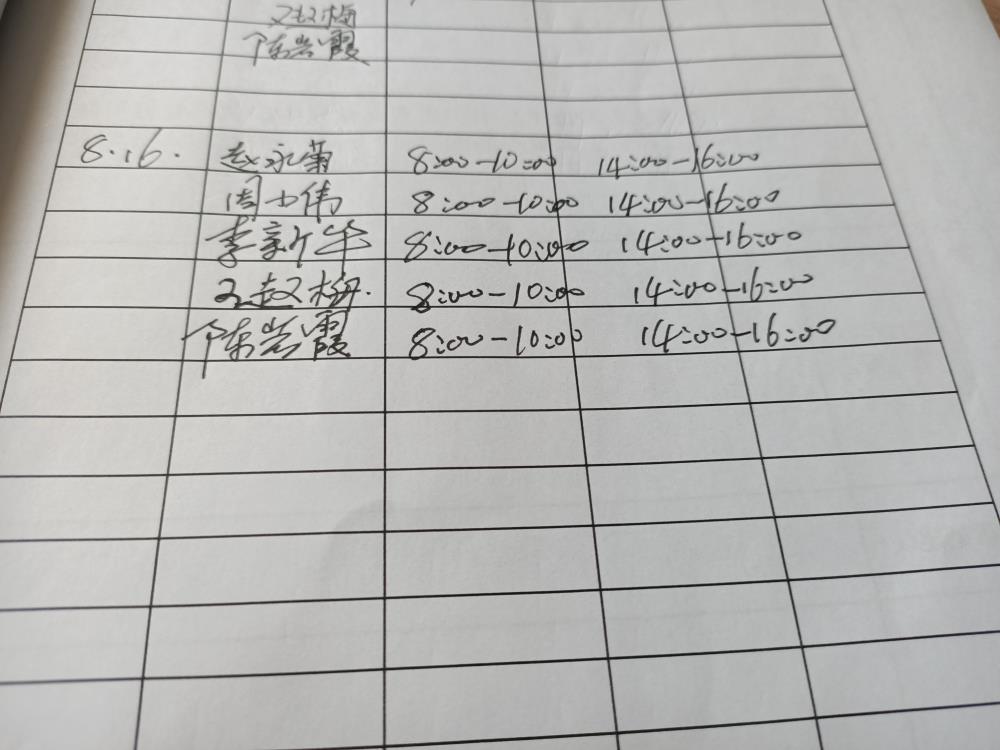 赵梅
陈岩霞
8.16. 赵永菊 8:00-10:00 14:00-16:00
周小伟 8:00-10:00 14:00-16:00
李家华 8:00-10:00 14:00-16:00
王赵梅. 8:00-10:00 14:00-16:00
陈岩霞 8:00-10:00 14:00-16:00